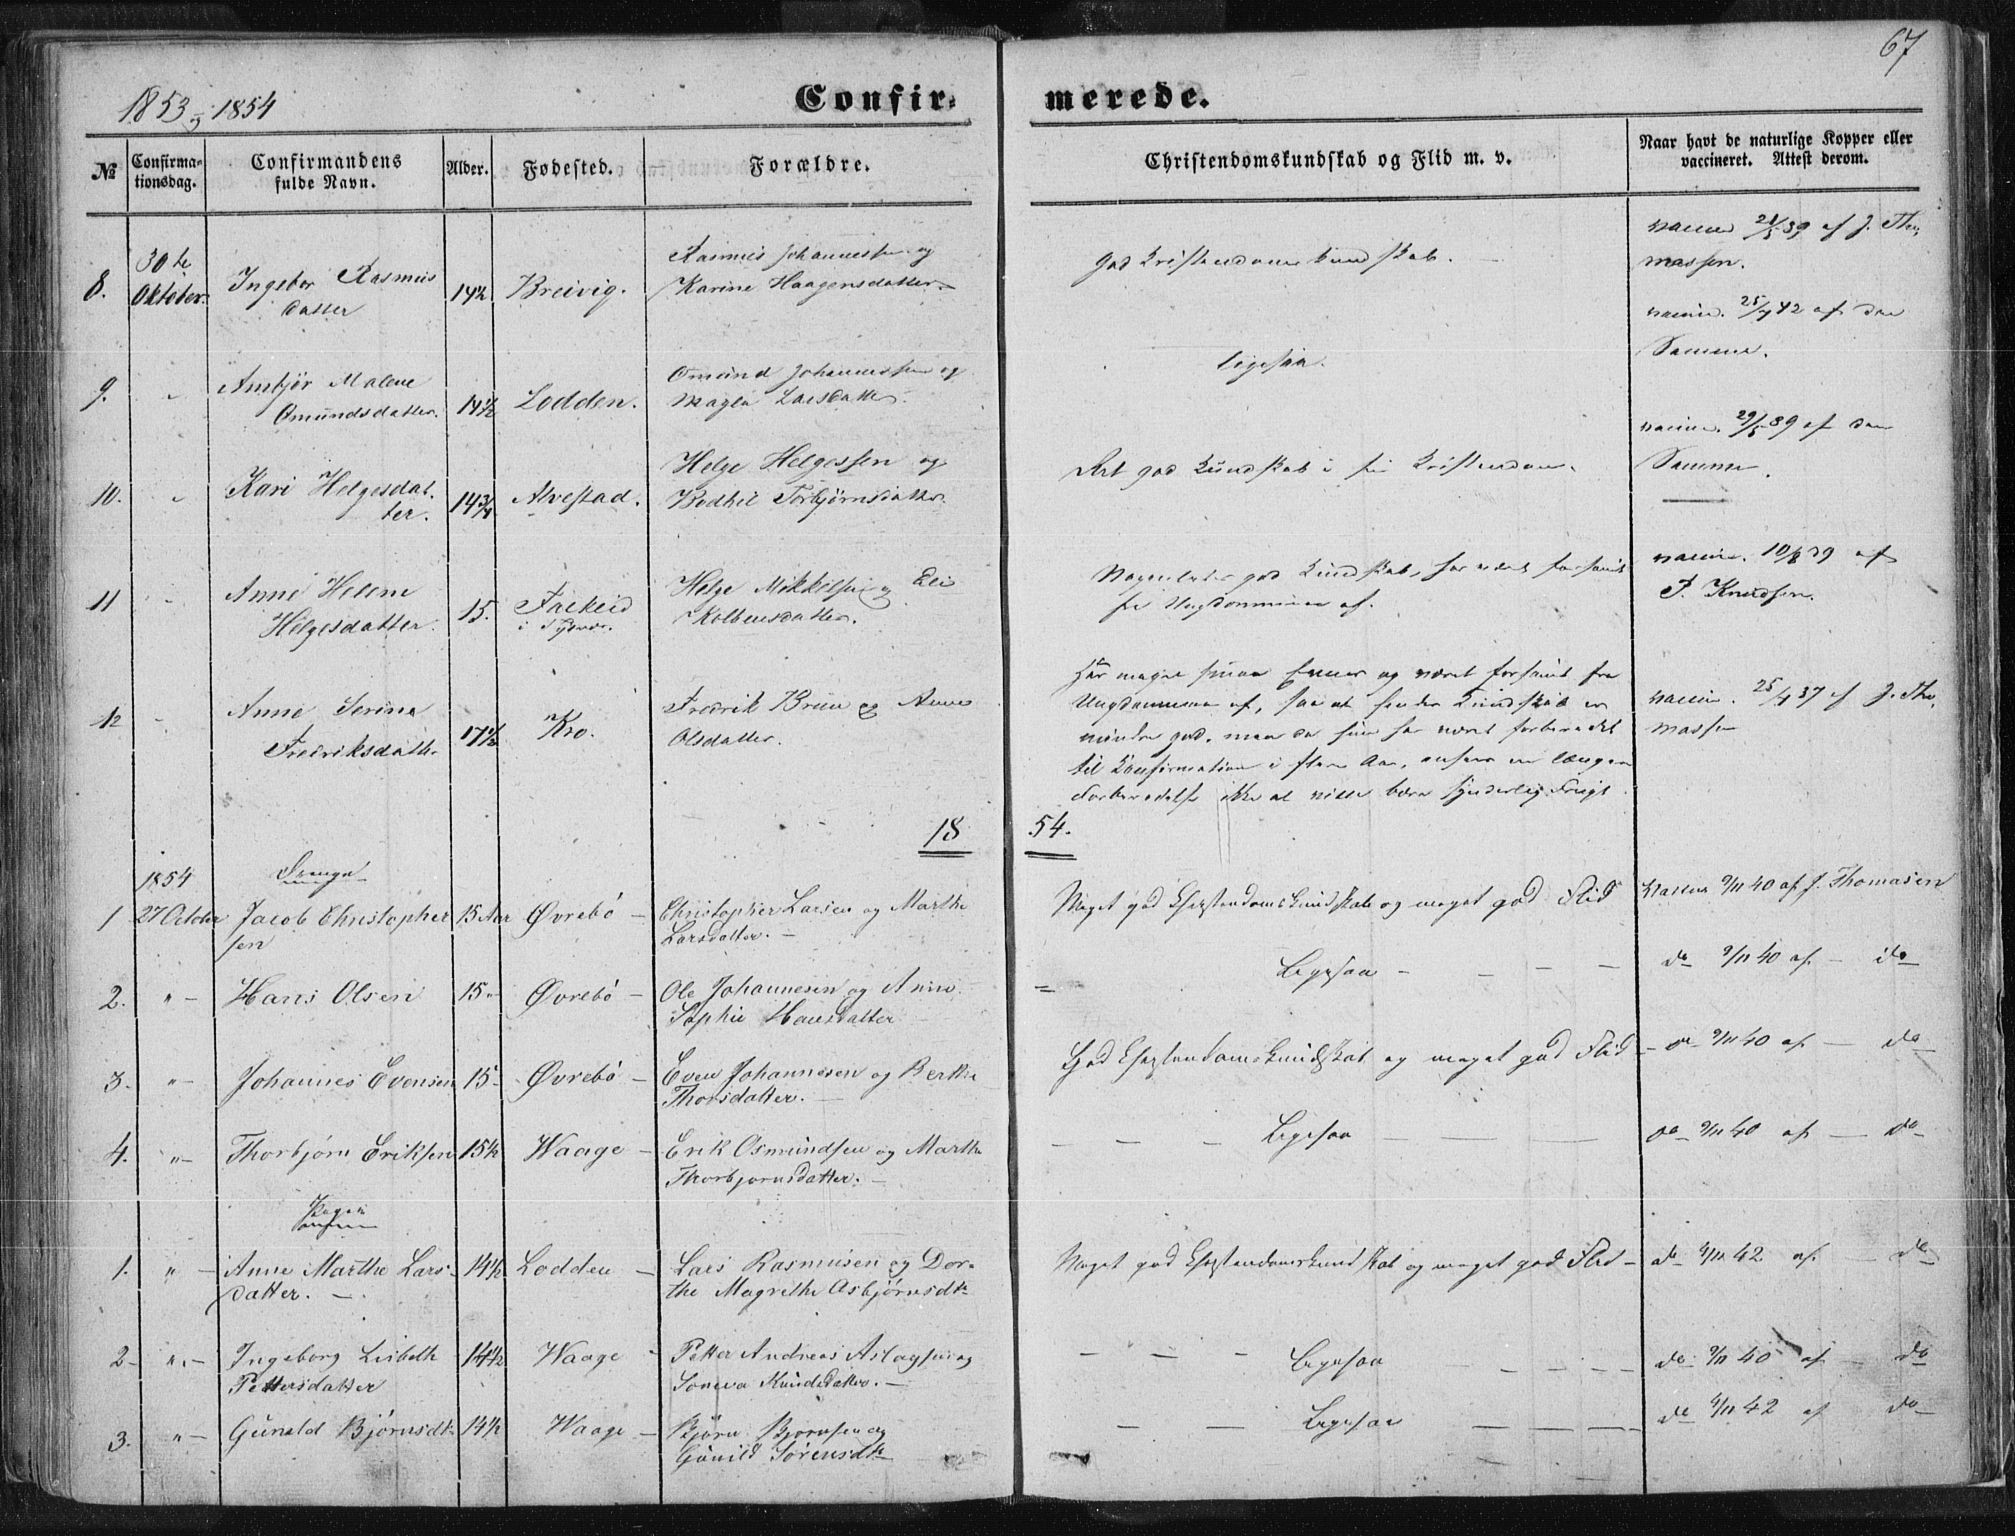 67
1853 og 1854
Confirmerede.
№ Confirmationsdag. Confirmandens fulde Navn. Alder. Fødested. Forældre. Christendomskundskab og Flid m. v. Naar havt de naturlige Kopper eller vaccineret. Attest derom.
8. 30te Oktober. Ingebor Rasmus 14½ Breivig. Rasmus Johannessen og god Kristendomskundskab. vaccin. 21/5 39 af J. Tho,
datter Karine Haagensdatter massen.
9. " Anbjør Malene 14½ Lodden. Omund Johannessen og ligesaa. vaccin. 25/7 42 af den
Omundsdatter. Magla Larsdatter. Samme.
10. " Kari Helgesdat- 14¾ Alvestad. Helge Helgessen og Ret god Kundskab i sin Kristendom. vaccin. 29/5 39 af den
ter. Bodhil Torbjørnsdatter. Samme.
11 " Anne Helene 15. Falkeid Helge Mikkelsen og Eli Nogenledes god Kundskab, har været forsømt vaccin. 10/8 39 af
Helgesdatter. i Tysvær. Kolbensdatter. fra Ungdommen af. P. Knudsen.
12 " Anne Serina 17½ Kro. Fredrik Bruu og Anne Har meget smaa Evner og været forsømt fra
Fredriksdatter Olsdatter. Ungdommen af, saa at hendes Kundskab er vaccin. 25/7 37 af J. Tho,
mindre god, men da hun har været forberedet massen
til Konfirmation i flere Aar, ansees en længere
Forberedelse ikke at ville bære synderlig Frugt
1854.
1854 Drenge
1 27 October Jacob Christopher 15 Aar Øvrebö Christopher Larsen og Marthe Meget god Christendomskundskab og meget god Flid Vaccin 9/11 40 af J. Thomasen
sen Larsdatter.
2. " Hans Olsen 15 " Øvrebö Ole Johannesen og Anne Ligesaa do 9/11 40 af do
Sophie Hansdatter
3. " Johannes Evensen 15 Øvrebö Even Johannesen og Berthe God Christendomskundskab og meget god Flid do 9/11 40 af do
Thorsdatter.
4. " Thorbjørn Eriksen 15½ Waage Erik Osmundsen og Marthe Ligesaa do 9/11 40 af do
Thorbjørnsdatter.
Piger
1. " Anne Marthe Lars- 14½ Lodden Lars Rasmusen og Dor- Meget god Christendomskundskab og meget god Flid do 4/11 42 af do
datter. the Magrethe Asbjørnsdtr
2 " Ingeborg Lisbeth 14½ Waage Petter Andreas Aslagsen og Ligesaa do 9/11 40 af do
Pettersdatter Soneva Knudsdatter.
3. " Gunald Bjørnsdtr 14½ Waage Bjørn Bjornsen og Ligesaa do 4/11 42 af do
Gunild Sørensdtr